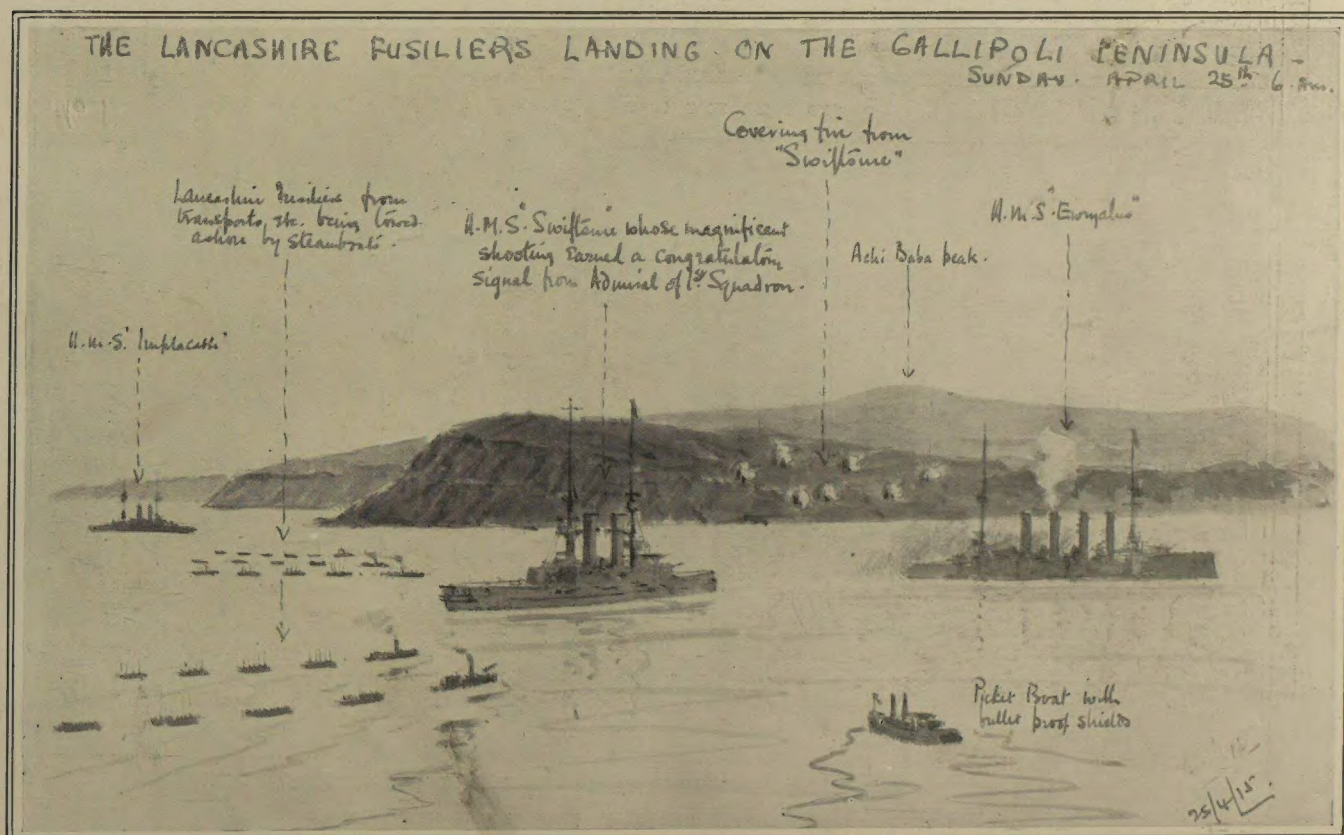 THE LANCASHIRE FUSILIERS LANDING ON THE GALLIPOLI PENINSULA -
SUNDAY. APRIL 25th 6. am.
Covering fire from
"Swiftsure"
Lancashire Fusiliers from
transports, etc. being towed
ashore by steamboats.
H.M.S. "Swiftsure" whose magnificent
shooting earned a congratulatory
signal from Admiral of 1st Squadron.
H.M.S. "Euryalus"
Achi Baba peak.
H.M.S. "Implacable"
Picket Boat with
bullet proof shields
25/4/15.